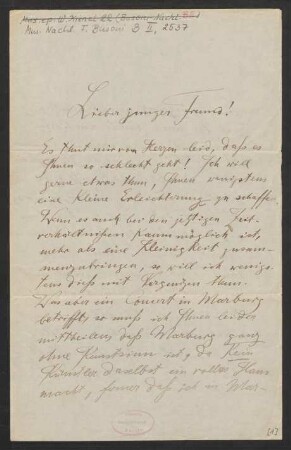 Mus. Nachl. F. Busoni B II, 2537
Lieber junger Freund!
Es thut mir von Herzen leid, daß es
Ihnen so schlecht geht! Ich will
gerne etwas thun, Ihnen wenigstens
eine kleine Erleichterung zu schaffen.
Wenn es auch bei den jetzigen Zeit-
verhältnissen kaum möglich ist,
mehr als eine Kleinigkeit zusam-
menzubringen, so will ich wenigs-
tens dieß mit Vergnügen thun.
Was aber ein Concert in Marburg
betrifft, so muß ich Ihnen leider
mittheilen daß Marburg ganz
ohne Kunstsinn ist, da kein
Künstler daselbst ein volles Haus
macht, ferner daß ich in Mar-